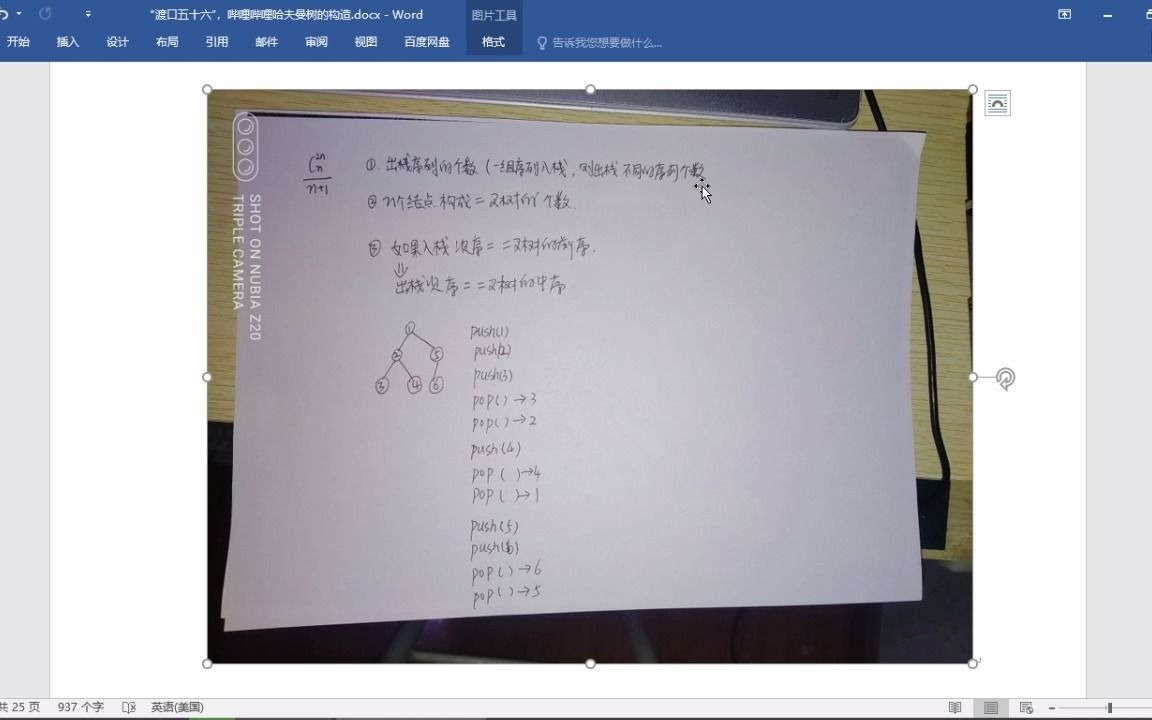 "渡口五十六"，哔哩哔哩哈夫曼树的构造.docx - Word
图片工具
开始 插入 设计 布局 引用 邮件 审阅 视图 百度网盘 格式 告诉我您想要做什么...
C 2n n
n+1
①. 出栈序列的个数 (一组序列入栈, 则出栈不同的序列个数
② n个结点构成二叉树的个数.
③ 如果入栈次序 = 二叉树的前序.
⇓
出栈次序 = 二叉树的中序
1
2 5
3 4 6
push(1)
push(2)
push(3)
pop()→3
pop()→2
push(4)
pop()→4
pop()→1
push(5)
push(6)
pop()→6
pop()→5
SHOT ON NUBIA Z20
TRIPLE CAMERA
共 25 页 937 个字 英语(美国)